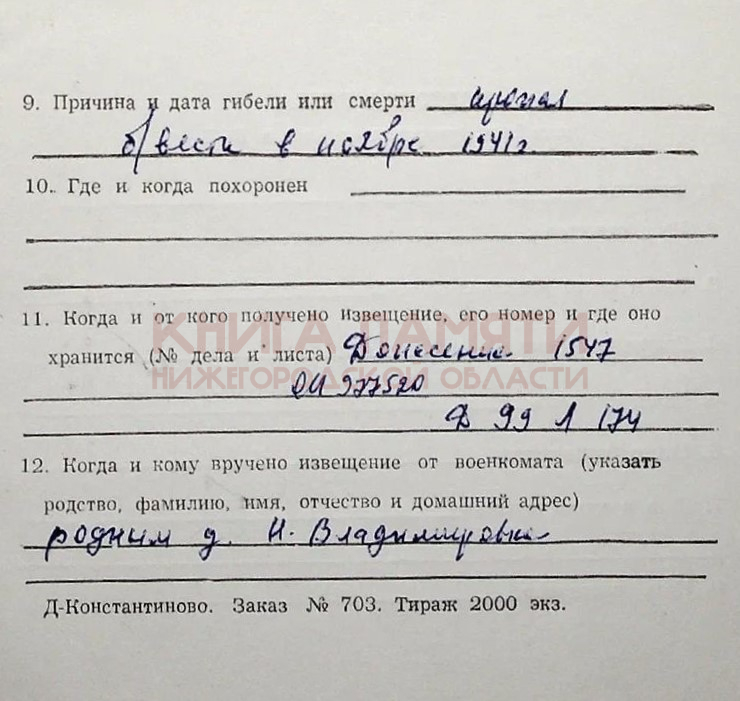 9. Причина и дата гибели или смерти пропал
б/вести в ноябре 1941 г.
10. Где и когда похоронен
11. Когда и от кого получено извещение, его номер и где оно
хранится (№ дела и листа) Донесение 1547
КНИГА ПАМЯТИ
НИЖЕГОРОДСКОЙ ОБЛАСТИ
оп 977520
Д 99 Л 174
12. Когда и кому вручено извещение от военкомата (указать
родство, фамилию, имя, отчество и домашний адрес)
родным д. Н. Владимировка
Д-Константиново. Заказ № 703. Тираж 2000 экз.